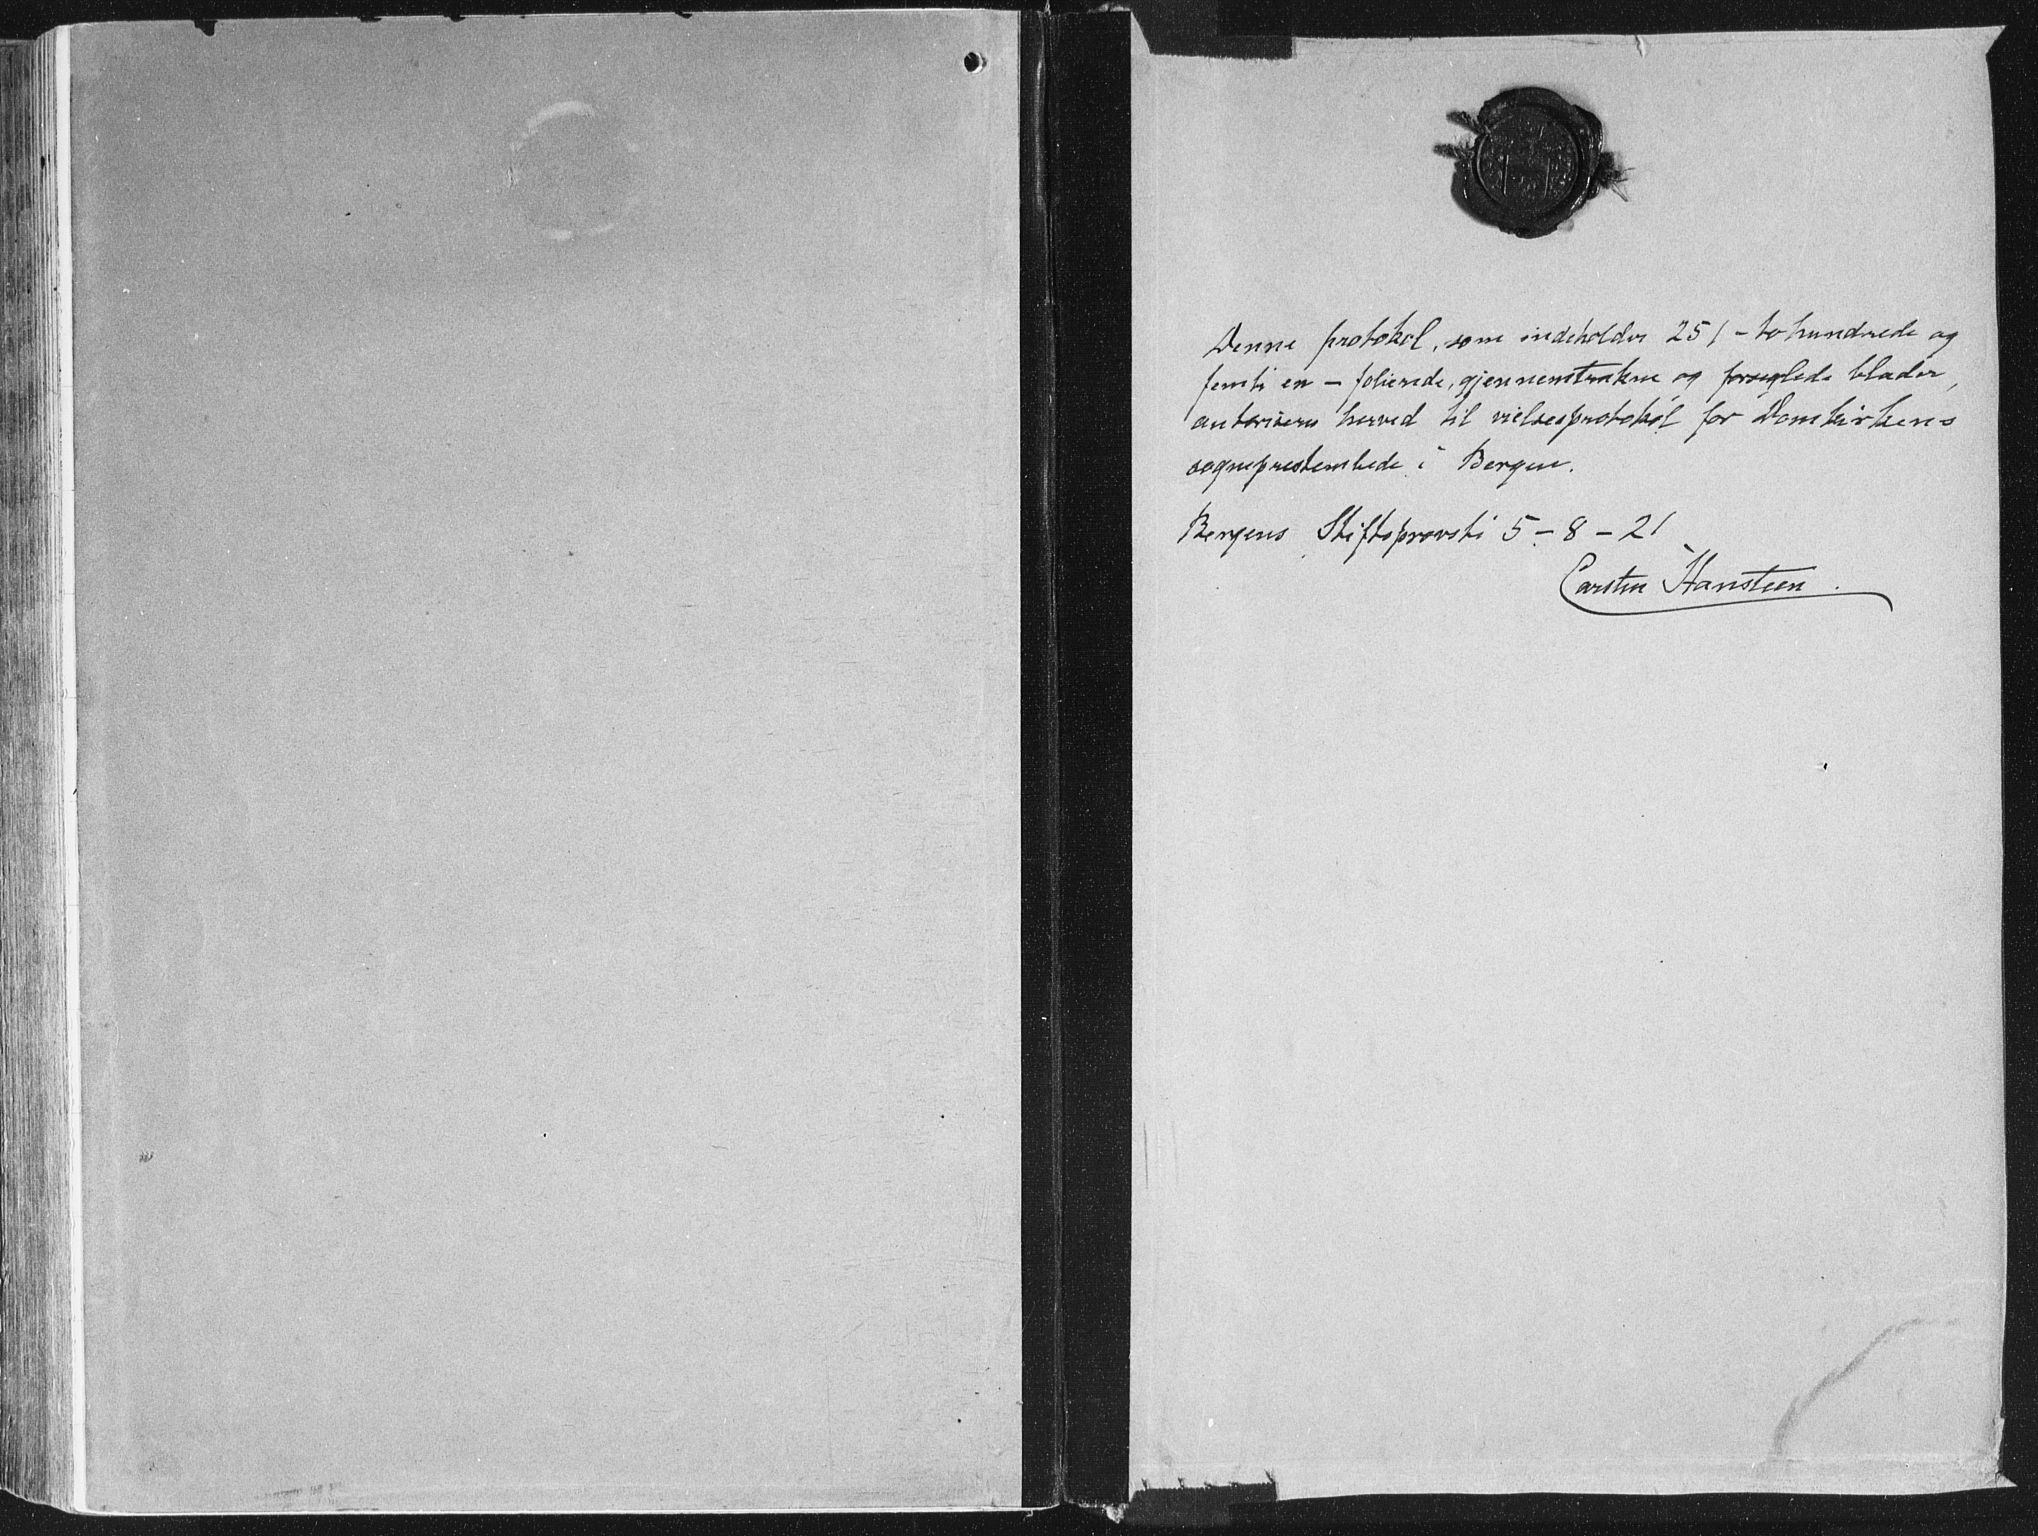 Denne protokol, som indeholder 251 – to hundrede og
femti en – folierede, gjennemtrukne og forseglede blader,
autoriseres herved til vielsesprotokol for Domkirkens
sogneprestembede i Bergen.
Bergens Stiftsprovsti 5 – 8 – 21
Carsten Hansteen.